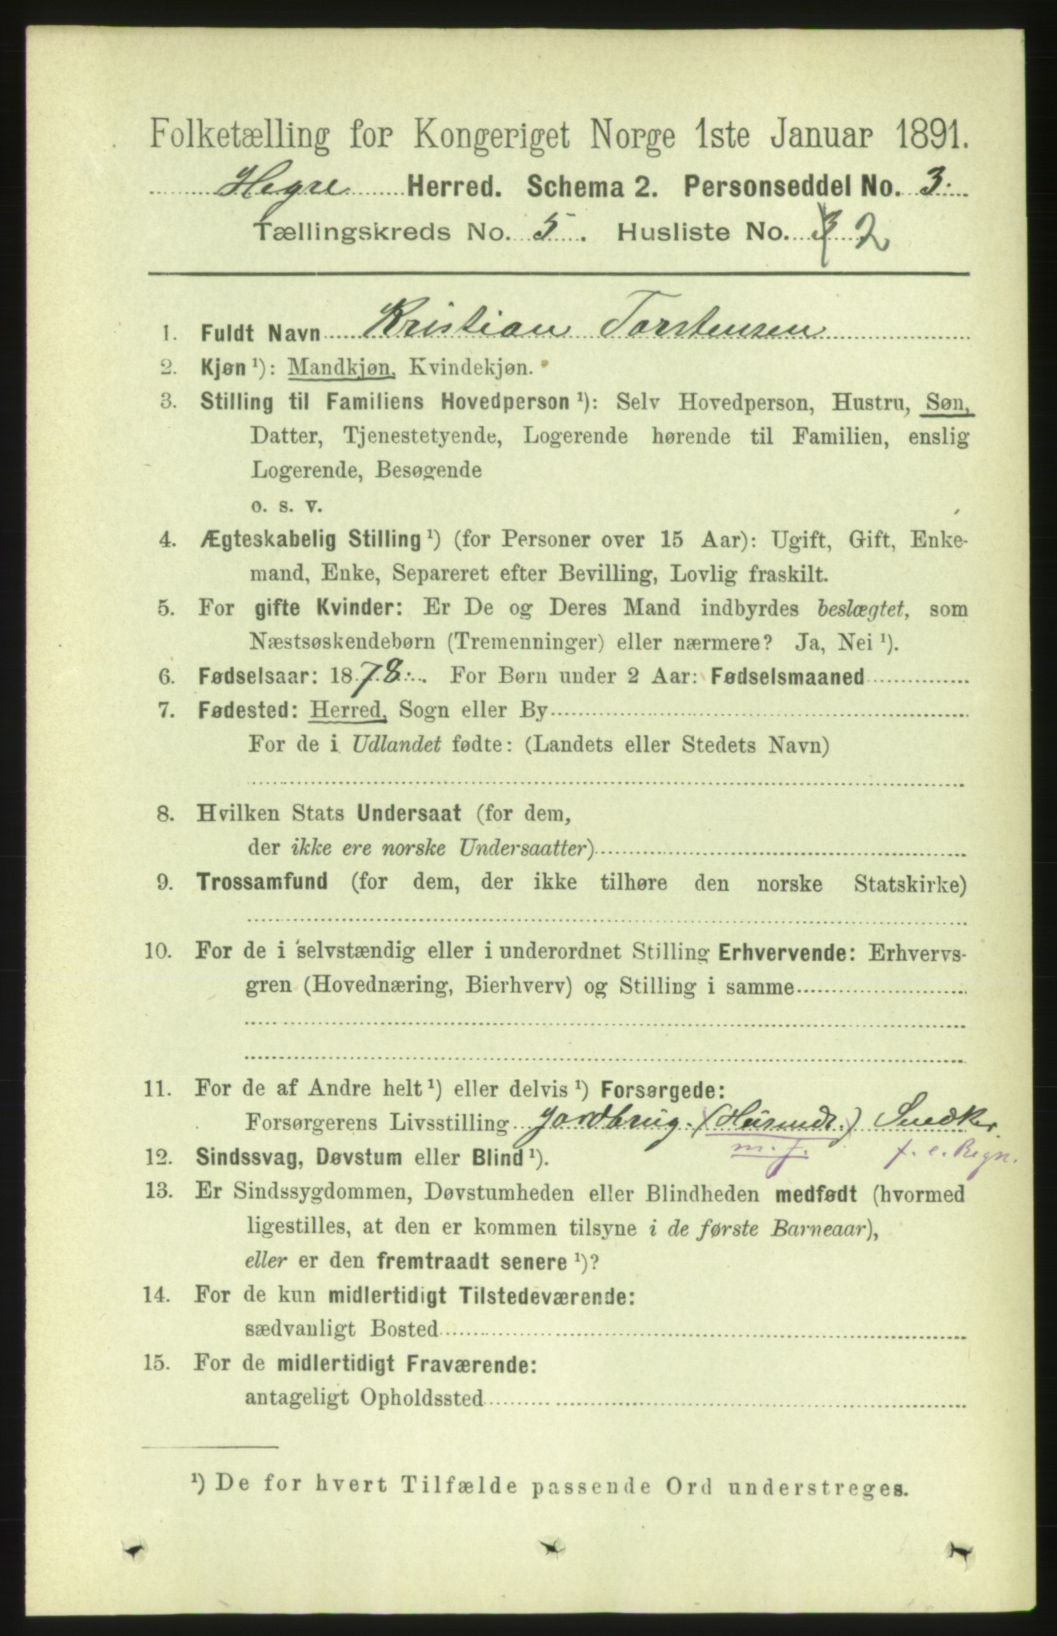 Folketælling for Kongeriget Norge 1ste Januar 1891.
Hegre Herred. Schema 2. Personseddel No. 3.
Tællingskreds No. 5. Husliste No. 3 2
1. Fuldt Navn Kristian Torstensen
2. Kjøn ¹): Mandkjøn, Kvindekjøn.
3. Stilling til Familiens Hovedperson ¹): Selv Hovedperson, Hustru, Søn,
Datter, Tjenestetyende, Logerende hørende til Familien, enslig
Logerende, Besøgende
o. s. v.
4. Ægteskabelig Stilling ¹) (for Personer over 15 Aar): Ugift, Gift, Enke-
mand, Enke, Separeret efter Bevilling, Lovlig fraskilt.
5. For gifte Kvinder: Er De og Deres Mand indbyrdes beslægtet, som
Næstsøskendebørn (Tremenninger) eller nærmere? Ja, Nei ¹).
6. Fødselsaar: 1878. For Børn under 2 Aar: Fødselsmaaned
7. Fødested: Herred, Sogn eller By
For de i Udlandet fødte: (Landets eller Stedets Navn)
8. Hvilken Stats Undersaat (for dem,
der ikke ere norske Undersaatter)
9. Trossamfund (for dem, der ikke tilhøre den norske Statskirke)
10. For de i selvstændig eller i underordnet Stilling Erhvervende: Erhvervs-
gren (Hovednæring, Bierhverv) og Stilling i samme
11. For de af Andre helt ¹) eller delvis ¹) Forsørgede:
Forsørgerens Livsstilling Jordbrug. (Husmdr.) Snedker.
m. j. f. e. Regn.
12. Sindssvag, Døvstum eller Blind ¹).
13. Er Sindssygdommen, Døvstumheden eller Blindheden medfødt (hvormed
ligestilles, at den er kommen tilsyne i de første Barneaar),
eller er den fremtraadt senere ¹)?
14. For de kun midlertidigt Tilstedeværende:
sædvanligt Bosted
15. For de midlertidigt Fraværende:
antageligt Opholdssted
¹) De for hvert Tilfælde passende Ord understreges.